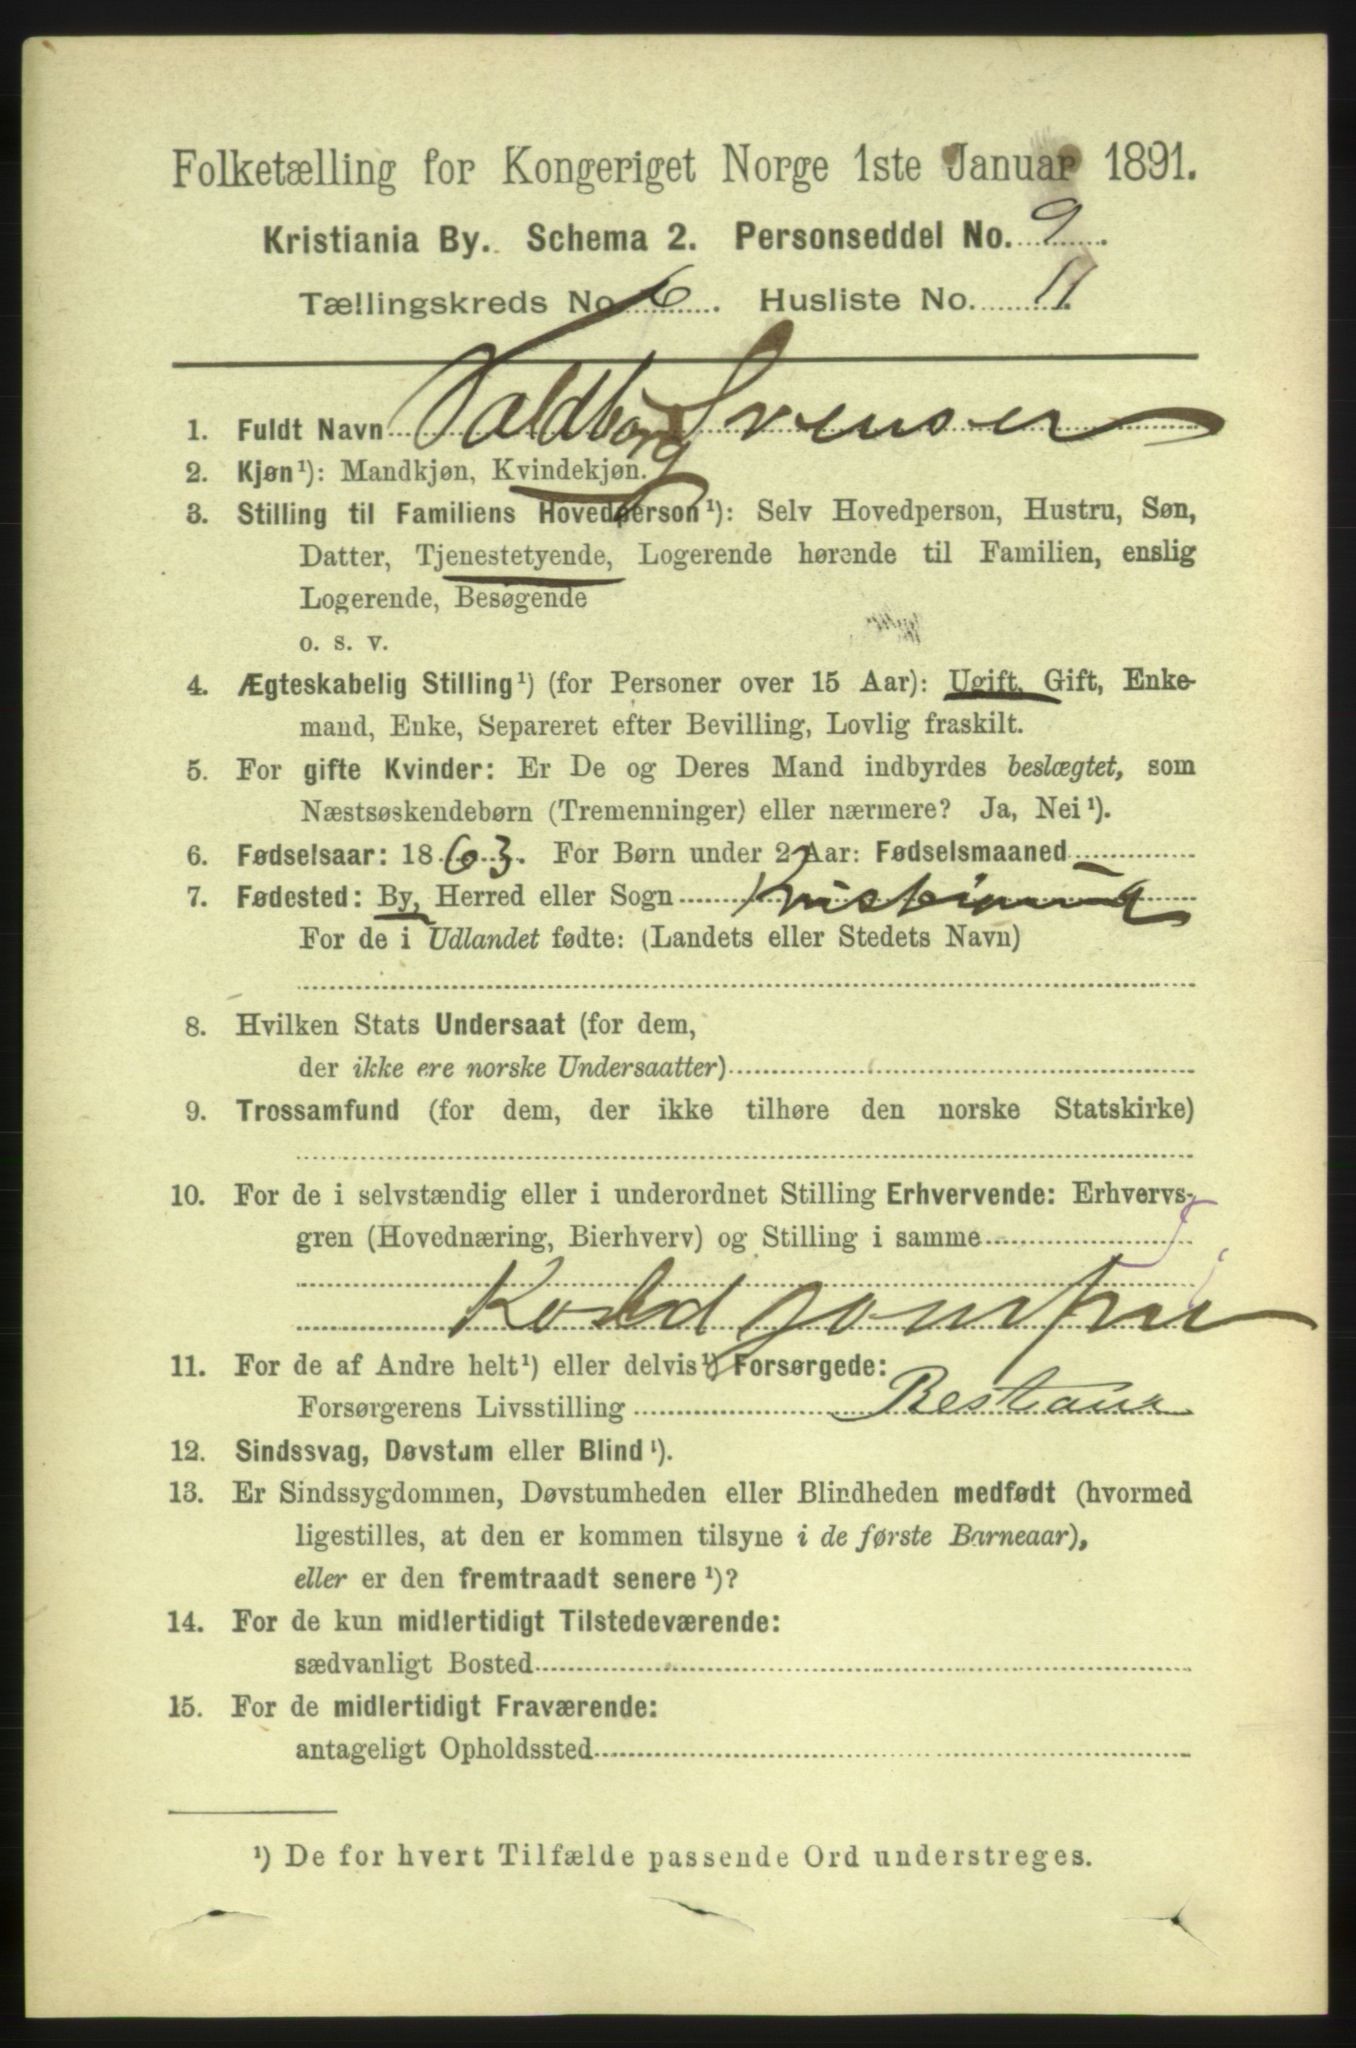 Folketælling for Kongeriget Norge 1ste Januar 1891.
Kristiania By. Schema 2. Personseddel No. 9.
Tællingskreds No. 6. Husliste No. 11.
1. Fuldt Navn Valdborg Svensen
2. Kjøn¹): Mandkjøn, Kvindekjøn.
3. Stilling til Familiens Hovedperson¹): Selv Hovedperson, Hustru, Søn,
Datter, Tjenestetyende, Logerende hørende til Familien, enslig
Logerende, Besøgende
o. s. v.
4. Ægteskabelig Stilling¹) (for Personer over 15 Aar): Ugift, Gift, Enke-
mand, Enke, Separeret efter Bevilling, Lovlig fraskilt.
5. For gifte Kvinder: Er De og Deres Mand indbyrdes beslægtet, som
Næstsøskendebørn (Tremenninger) eller nærmere? Ja, Nei¹).
6. Fødselsaar: 1863. For Børn under 2 Aar: Fødselsmaaned
7. Fødested: By, Herred eller Sogn Kristiania
For de i Udlandet fødte: (Landets eller Stedets Navn)
8. Hvilken Stats Undersaat (for dem,
der ikke ere norske Undersaatter)
9. Trossamfund (for dem, der ikke tilhøre den norske Statskirke)
10. For de i selvstændig eller i underordnet Stilling Erhvervende: Erhvervs-
gren (Hovednæring, Bierhverv) og Stilling i samme
Kold jomfru
11. For de af Andre helt¹) eller delvis¹) Forsørgede:
Forsørgerens Livsstilling Restaur
12. Sindssvag, Døvstum eller Blind¹).
13. Er Sindssygdommen, Døvstumheden eller Blindheden medfødt (hvormed
ligestilles, at den er kommen tilsyne i de første Barneaar),
eller er den fremtraadt senere¹)?
14. For de kun midlertidigt Tilstedeværende:
sædvanligt Bosted
15. For de midlertidigt Fraværende:
antageligt Opholdssted
¹) De for hvert Tilfælde passende Ord understreges.